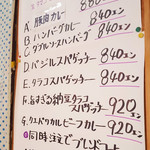 A. 豚肉カレー 840エン
B. ハンバーグカレー 840エン
C. ダブルソースハンバーグ 840エン
D. バジルスパゲッテー 840エン
E. タラコスパゲッテー 840エン
F. なすの納豆タラコ
スパゲッテー 920エン
G. ウエスタンカルビーフカレー 920エン
同時注文でブレンドコー